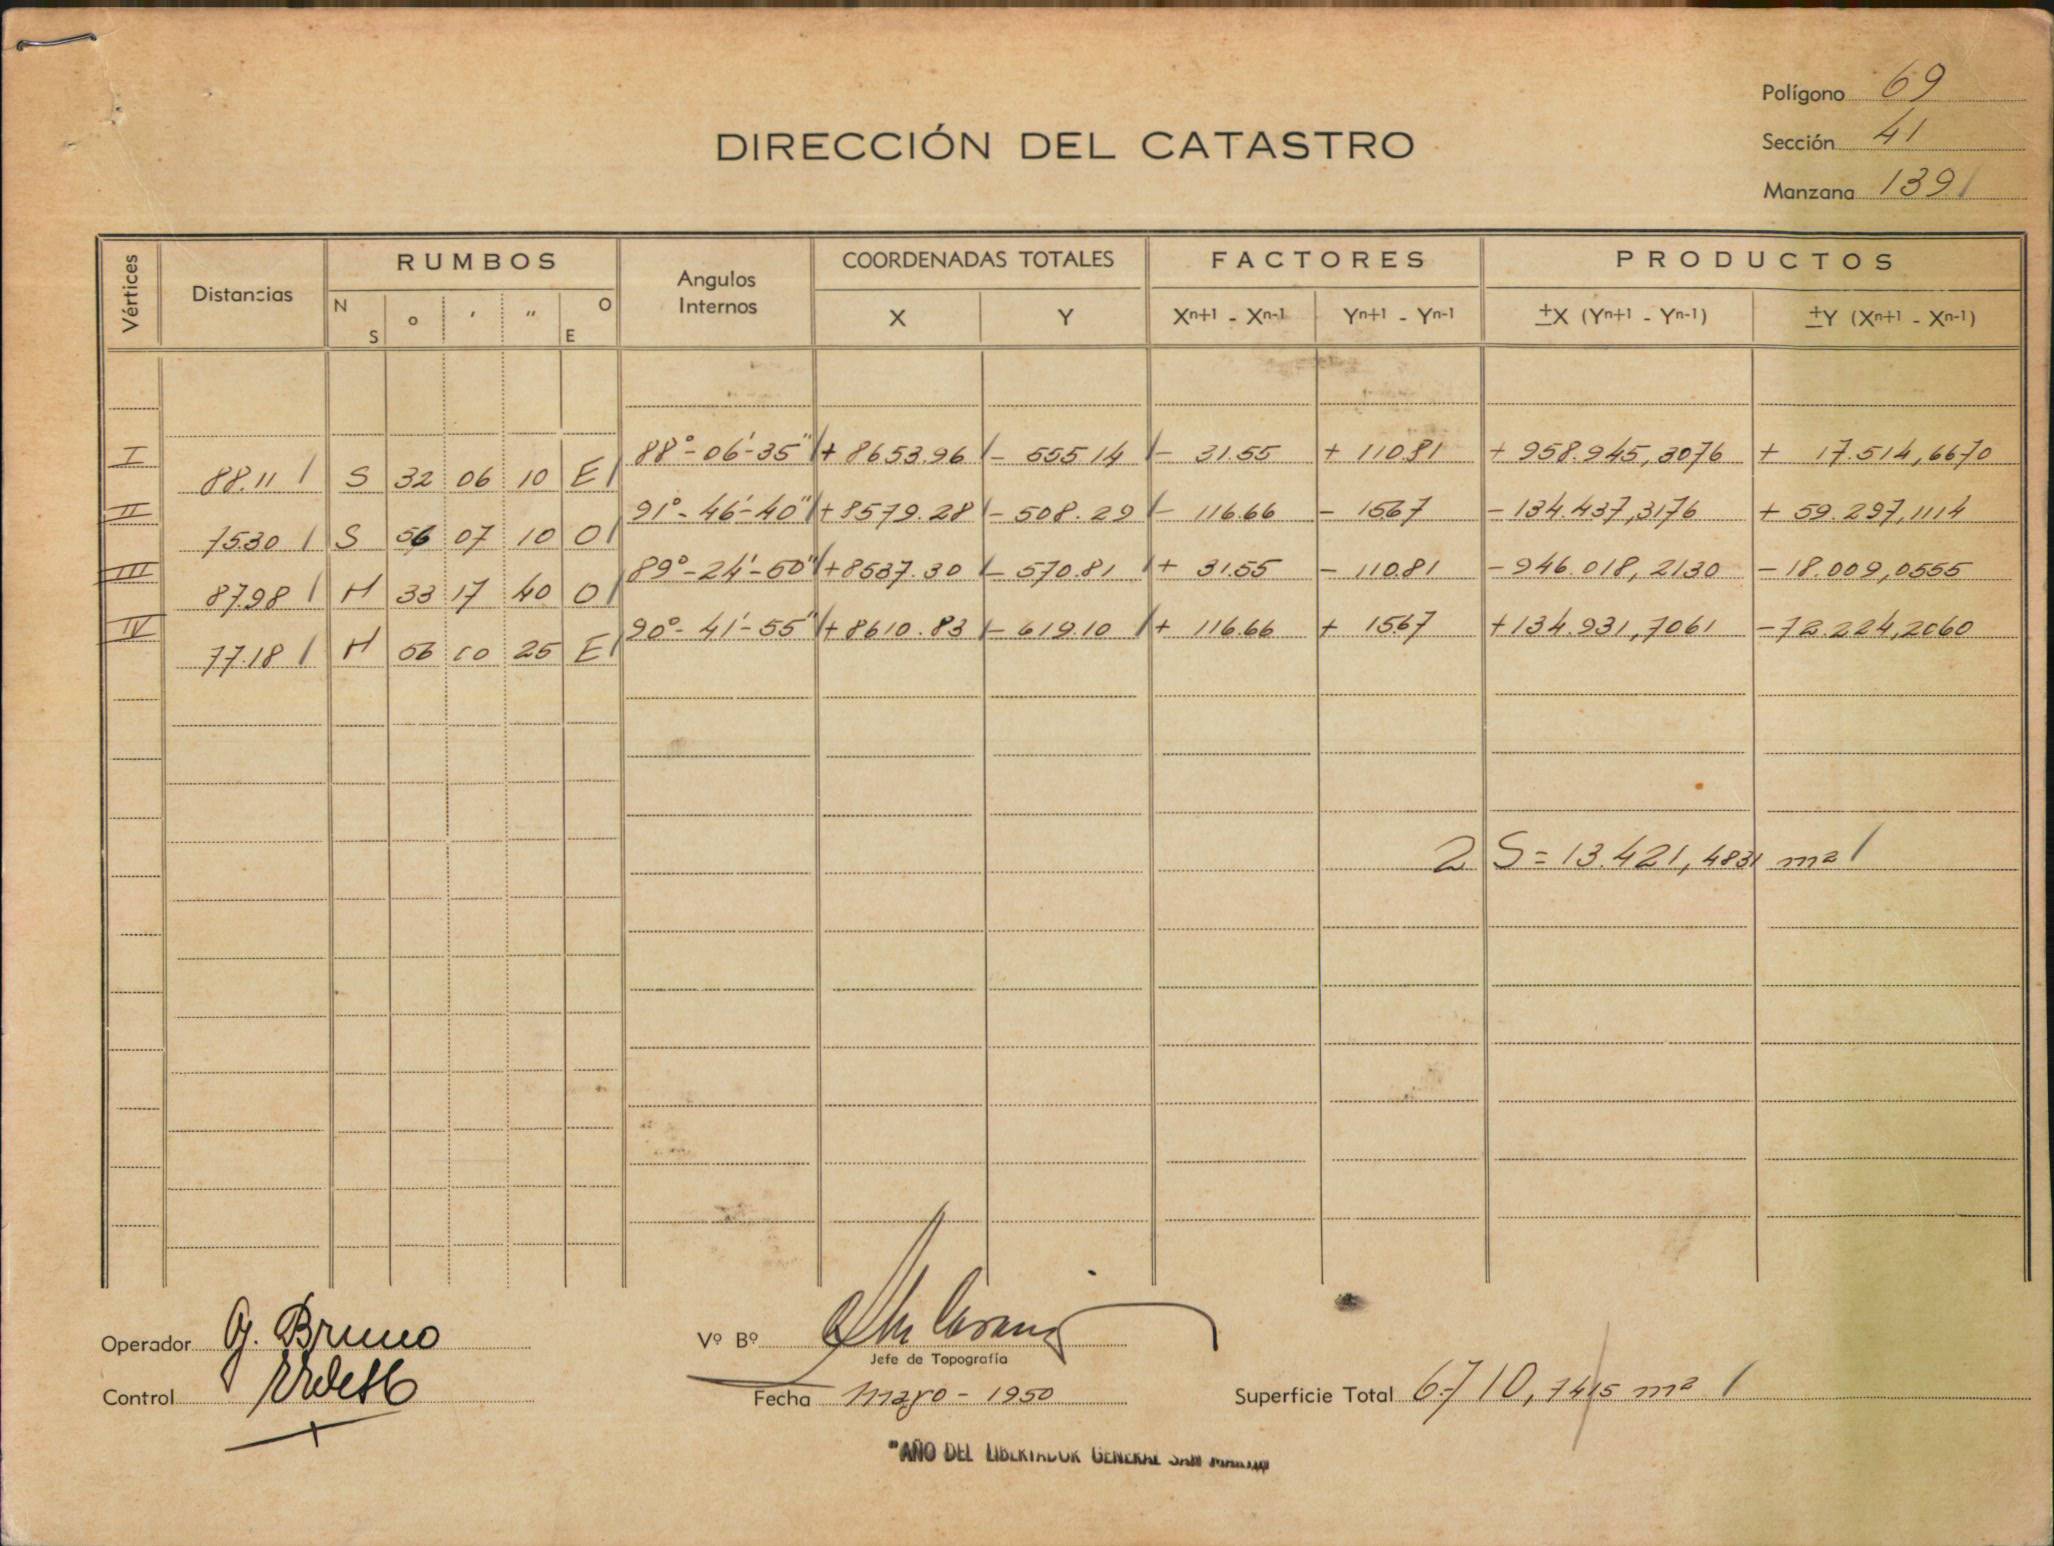 Polígono 69
DIRECCIÓN DEL CATASTRO
Sección 41
Manzana 139/
Vértices Distancias RUMBOS Angulos Internos COORDENADAS TOTALES FACTORES PRODUCTOS
N S o ' " O E X Y Xn+1 - Xn-1 Yn+1 - Yn-1 ±X (Yn+1 - Yn-1) ±Y (Xn+1 - Xn-1)
I 88°-06'-35" + 8653.96 - 555.14 - 31.55 + 110.81 + 958.945,3076 + 17.514,6670
88.11 S 32 06 10 E
II 91°-46'-40" + 8579.28 - 508.29 - 116.66 - 15.67 - 134.437,3176 + 59.297,1114
75.30 S 56 07 10 O
III 89°-24'-50" + 8537.30 - 570.81 + 31.55 - 110.81 - 946.018,2130 - 18.009,0555
87.98 N 33 17 40 O
IV 90°-41'-55" + 8610.83 - 619.10 + 116.66 + 15.67 + 134.931,7061 - 72.224,2060
77.18 N 56 00 25 E
2 S = 13.421,4831 m2
Operador G. Bruno
Vº Bº
Jefe de Topografía
Control
Fecha mayo - 1950
Superficie Total 6.710,7415 m2
"AÑO DEL LIBERTADOR GENERAL SAN MARTIN